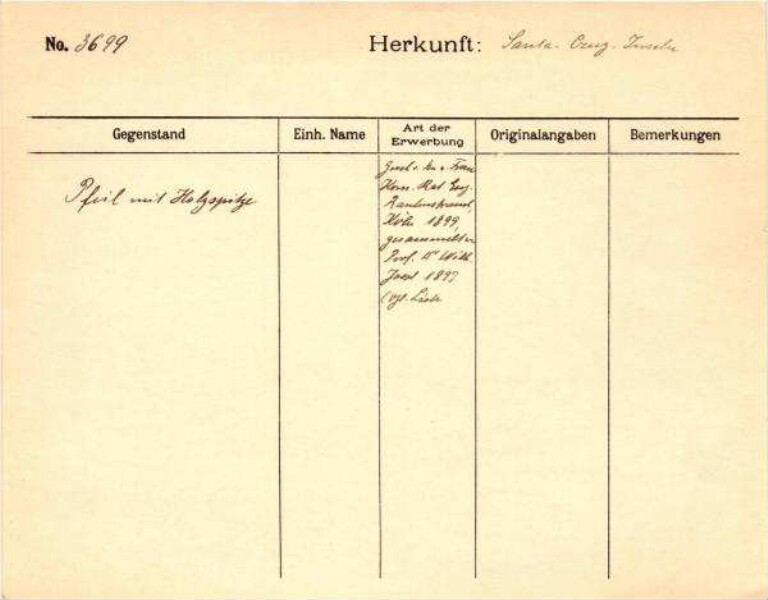 No. 3699
Herkunft: Santa-Cruz-Inseln
Gegenstand
Einh. Name
Art der Erwerbung
Originalangaben
Bemerkungen
Pfeil mit Holzspitze
Gesch. v. Frau
Kom. Rat Eug.
Rautenstrauch,
Köln 1899,
gesammelt v.
Prof. Dr Wilh.
Joest 1897
(vgl. Liste